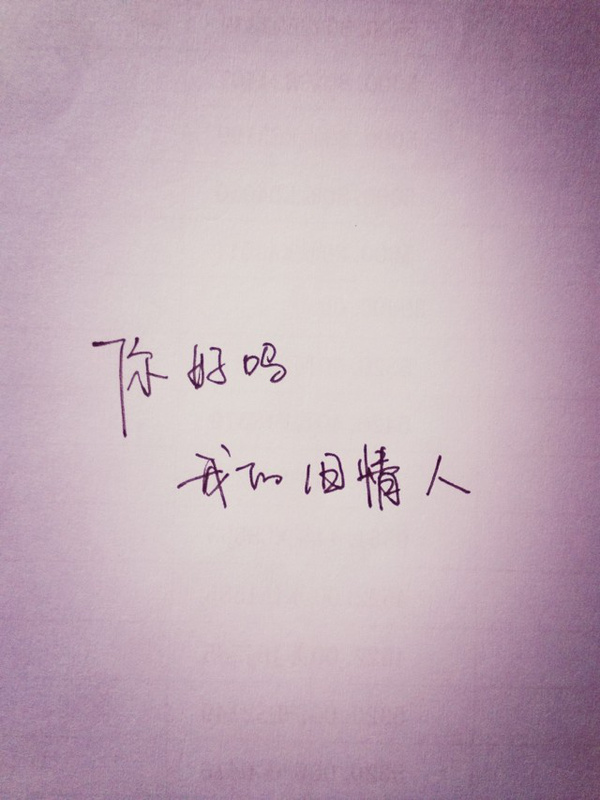 你好吗
我的旧情人